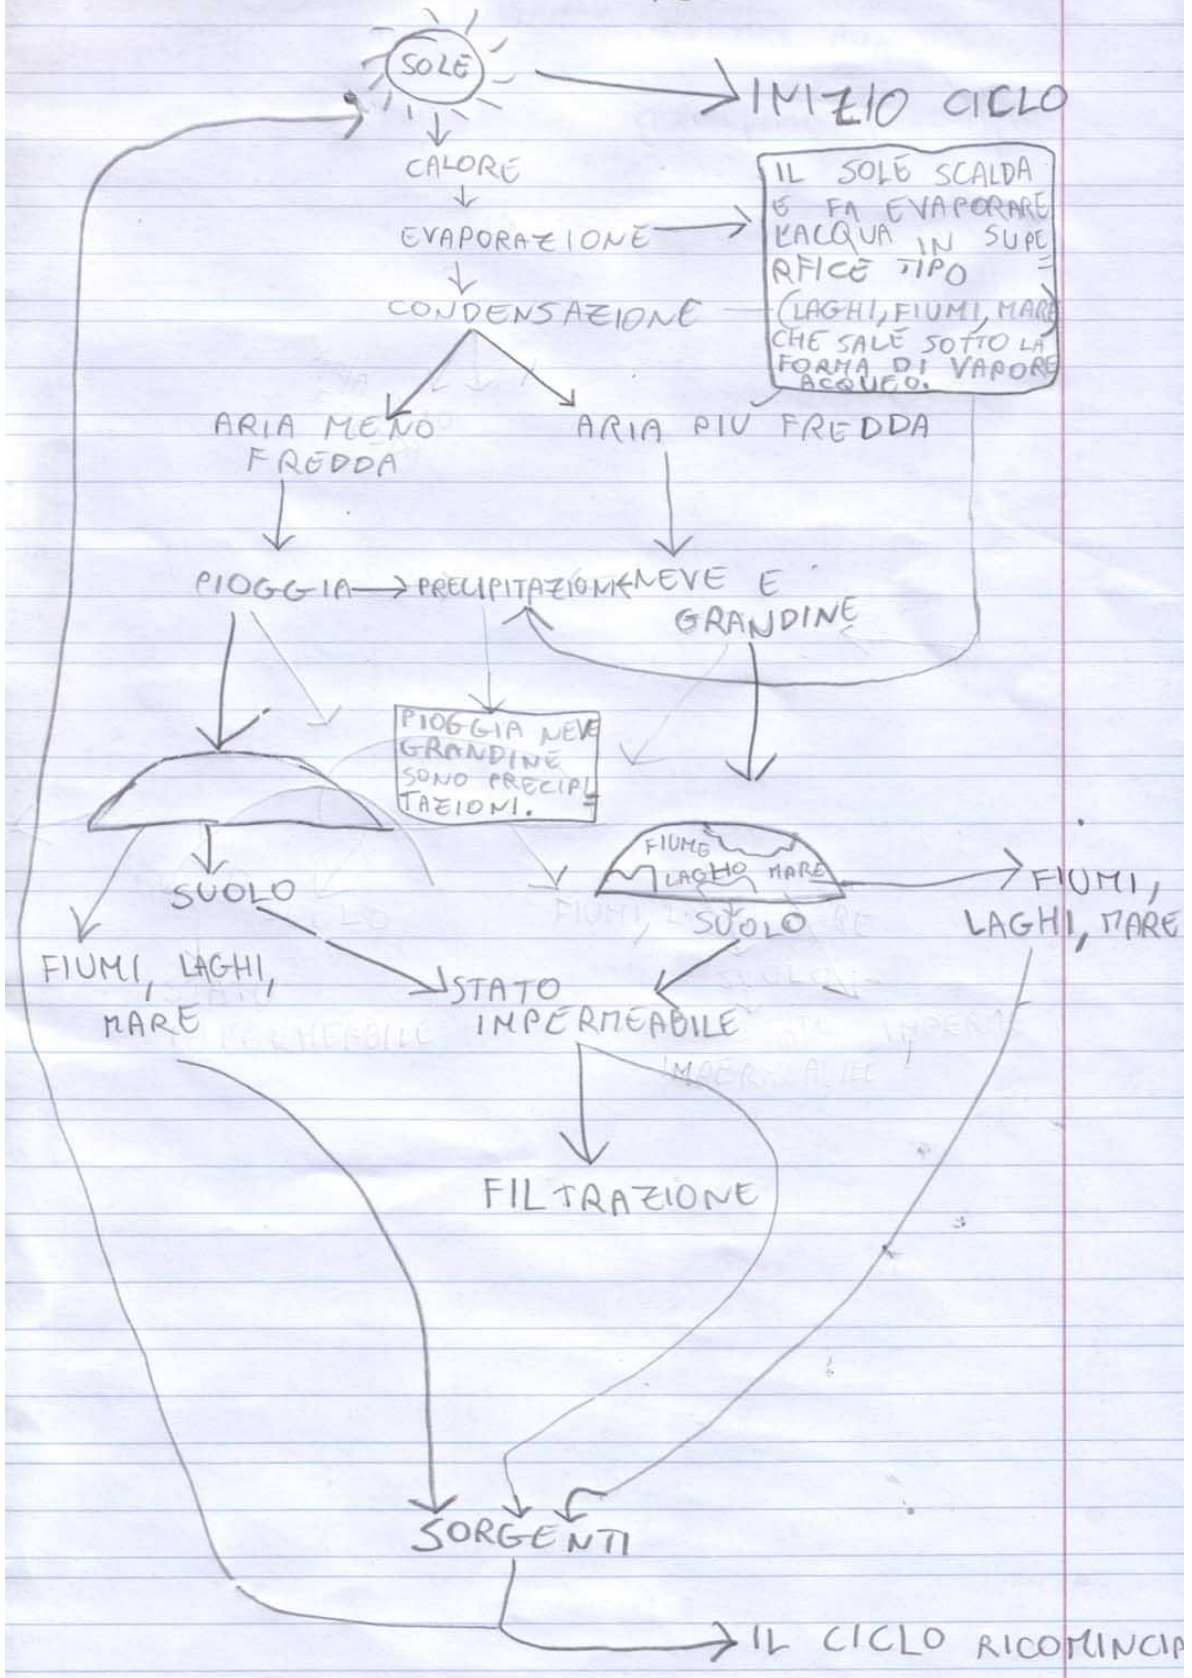 SOLE
INIZIO CICLO
CALORE
EVAPORAZIONE
IL SOLE SCALDA
E FA EVAPORARE
L'ACQUA IN SUPE
RFICE TIPO =
(LAGHI, FIUMI, MARE)
CHE SALE SOTTO LA
FORMA DI VAPORE
ACQUEO.
CONDENSAZIONE
ARIA MENO
FREDDA
ARIA PIU FREDDA
PIOGGIA
PRECIPITAZIONE
NEVE E
GRANDINE
PIOGGIA NEVE
GRANDINE
SONO PRECIPI
TAZIONI. =
SUOLO
FIUME
LAGHO MARE
SUOLO
FIUMI,
LAGHI, MARE
FIUMI, LAGHI,
MARE
STATO
IMPERMEABILE
FILTRAZIONE
SORGENTI
IL CICLO RICOMINCIA